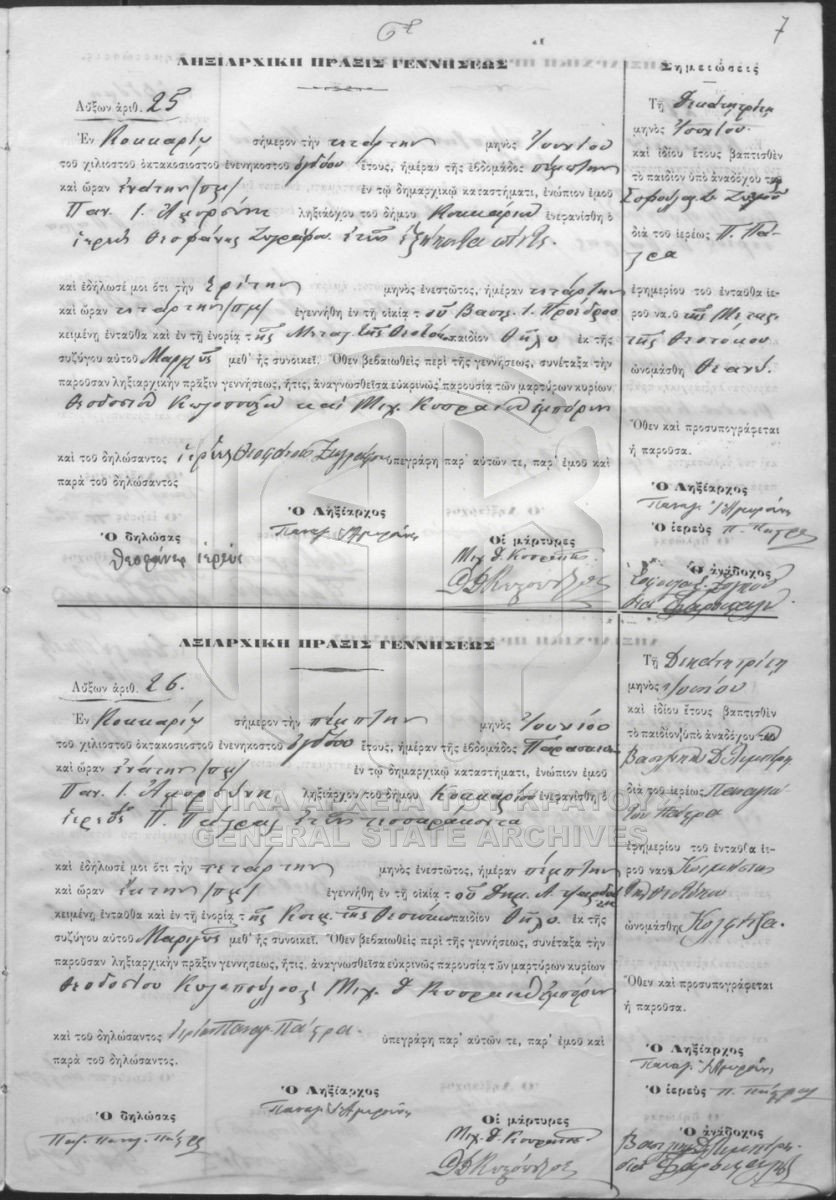 7
ΛΗΞΙΑΡΧΙΚΗ ΠΡΑΞΙΣ ΓΕΝΝΗΣΕΩΣ
Αὔξων ἀριθ. 25
Ἐν Κοκκαρίῳ σήμερον τὴν τετάρτην μηνὸς Ἰουνίου
τοῦ χιλιοστοῦ ὀκτακοσιοστοῦ ἐνενηκοστοῦ ὀγδόου ἔτους, ἡμέραν τῆς ἑβδομάδος πέμπτην
καὶ ὥραν ἐνάτην /πμ/ ἐν τῷ δημαρχικῷ καταστήματι, ἐνώπιον ἐμοῦ
Παν. Ι. ληξιάρχου τοῦ δήμου Κοκκαρίου ἐνεφανίσθη ὁ
ἱερεὺς Θεοφάνης Ζωγράφου ἐτῶν ἑξήκοντα πέντε.
καὶ ἐδήλωσέ μοι ὅτι τὴν τρίτην μηνὸς ἐνεστῶτος, ἡμέραν τετάρτην
καὶ ὥραν τετάρτην /πμ/ ἐγεννήθη ἐν τῇ οἰκίᾳ τοῦ Βασιλ. Ι. Προέδρου
κειμένῃ ἐνταῦθα καὶ ἐν τῇ ἐνορίᾳ τῆς Μεταστ. τῆς Θεοτόκου παιδίον θῆλυ ἐκ τῆς
συζύγου αὐτοῦ μεθ' ἧς συνοικεῖ. Ὅθεν βεβαιωθεὶς περὶ τῆς γεννήσεως, συνέταξα τὴν
παροῦσαν ληξιαρχικὴν πρᾶξιν γεννήσεως, ἥτις, ἀναγνωσθεῖσα εὐκρινῶς παρουσίᾳ τῶν μαρτύρων κυρίων
Θεοδοσίου καὶ Μιχ. ἐμπόρων
καὶ τοῦ δηλώσαντος ἱερέως Θεοφάνους Ζωγράφου ὑπεγράφη παρ' αὐτῶν τε, παρ' ἐμοῦ καὶ
παρὰ τοῦ δηλώσαντος
Ὁ Ληξίαρχος
Παναγ. Ι.
Ὁ δηλώσας
Θεοφάνης ἱερεύς
Οἱ μάρτυρες
Μιχ. Δ.
Σημειώσεις
Τῇ δεκάτῃ τρίτῃ
μηνὸς Ἰουνίου
καὶ ἰδίου ἔτους βαπτισθὲν
τὸ παιδίον ὑπὸ ἀναδόχου
διὰ τοῦ ἱερέως Π. Πά-
τρα
ἐφημερίου τοῦ ἐνταῦθα ἱε-
ροῦ ναοῦ τῆς Μεταστ.
τῆς Θεοτόκου
ὠνομάσθη Θεανώ.
Ὅθεν καὶ προσυπογράφεται
ἡ παροῦσα.
Ὁ Ληξίαρχος
Παναγ. Ι.
Ὁ ἱερεὺς Π. Πάτρας
Ὁ ἀνάδοχος
ΛΞΙΑΡΧΙΚΗ ΠΡΑΞΙΣ ΓΕΝΝΗΣΕΩΣ
Αὔξων ἀριθ. 26.
Ἐν Κοκκαρίῳ σήμερον τὴν πέμπτην μηνὸς Ἰουνίου
τοῦ χιλιοστοῦ ὀκτακοσιοστοῦ ἐνενηκοστοῦ ὀγδόου ἔτους, ἡμέραν τῆς ἑβδομάδος Παρασκευὴν
καὶ ὥραν ἐνάτην /πμ/ ἐν τῷ δημαρχικῷ καταστήματι, ἐνώπιον ἐμοῦ
Παν. Ι. ληξιάρχου τοῦ δήμου Κοκκαρίου ἐνεφανίσθη ὁ
ἱερεὺς Π. Πάτρας ἐτῶν τεσσαράκοντα
καὶ ἐδήλωσέ μοι ὅτι τὴν τετάρτην μηνὸς ἐνεστῶτος, ἡμέραν πέμπτην
καὶ ὥραν ἕκτην /πμ/ ἐγεννήθη ἐν τῇ οἰκίᾳ τοῦ Δημ.
κειμένῃ ἐνταῦθα καὶ ἐν τῇ ἐνορίᾳ τῆς Κοιμ. τῆς Θεοτόκου παιδίον θῆλυ ἐκ τῆς
συζύγου αὐτοῦ μεθ' ἧς συνοικεῖ. Ὅθεν βεβαιωθεὶς περὶ τῆς γεννήσεως, συνέταξα τὴν
παροῦσαν ληξιαρχικὴν πρᾶξιν γεννήσεως, ἥτις, ἀναγνωσθεῖσα εὐκρινῶς παρουσίᾳ τῶν μαρτύρων κυρίων
Θεοδοσίου Μιχ. Δ. ἐμπόρων
καὶ τοῦ δηλώσαντος ἱερέως Παναγ. Πάτρα. ὑπεγράφη παρ' αὐτῶν τε, παρ' ἐμοῦ καὶ
παρὰ τοῦ δηλώσαντος.
Ὁ Ληξίαρχος
Παναγ. Ι.
Ὁ δηλώσας
Παπ. Παναγ. Πάτρας
Οἱ μάρτυρες
Μιχ. Δ.
Τῇ Δεκάτῃ τρίτῃ
μηνὸς Ἰουνίου
καὶ ἰδίου ἔτους βαπτισθὲν
τὸ παιδίον ὑπὸ ἀναδόχου
διὰ τοῦ ἱερέως Παναγιώ-
του Πάτρα
ἐφημερίου τοῦ ἐνταῦθα ἱε-
ροῦ ναοῦ Κοιμήσεως
τῆς Θεοτόκου
ὠνομάσθη
Ὅθεν καὶ προσυπογράφεται
ἡ παροῦσα.
Ὁ Ληξίαρχος
Παναγ. Ι.
Ὁ ἱερεὺς Π. Πάτρας
Ὁ ἀνάδοχος
ΓΕΝΙΚΑ ΑΡΧΕΙΑ ΤΟΥ ΚΡΑΤΟΥΣ
GENERAL STATE ARCHIVES